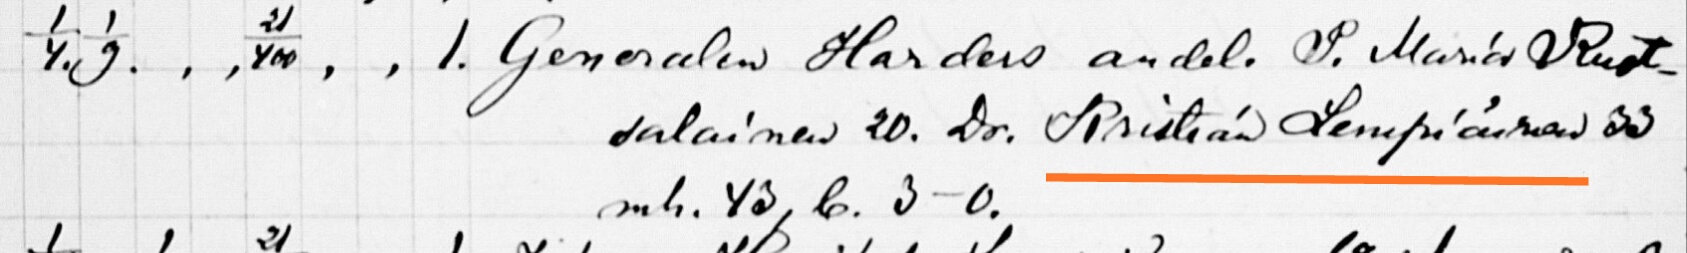 1/4. 1/9. , , 21/400 , , 1. Generalen Harders andel. P. Maria Rust-
salainen 20. Dr. Kristian Lempiäinen 33
mh. 43, b. 3-0.